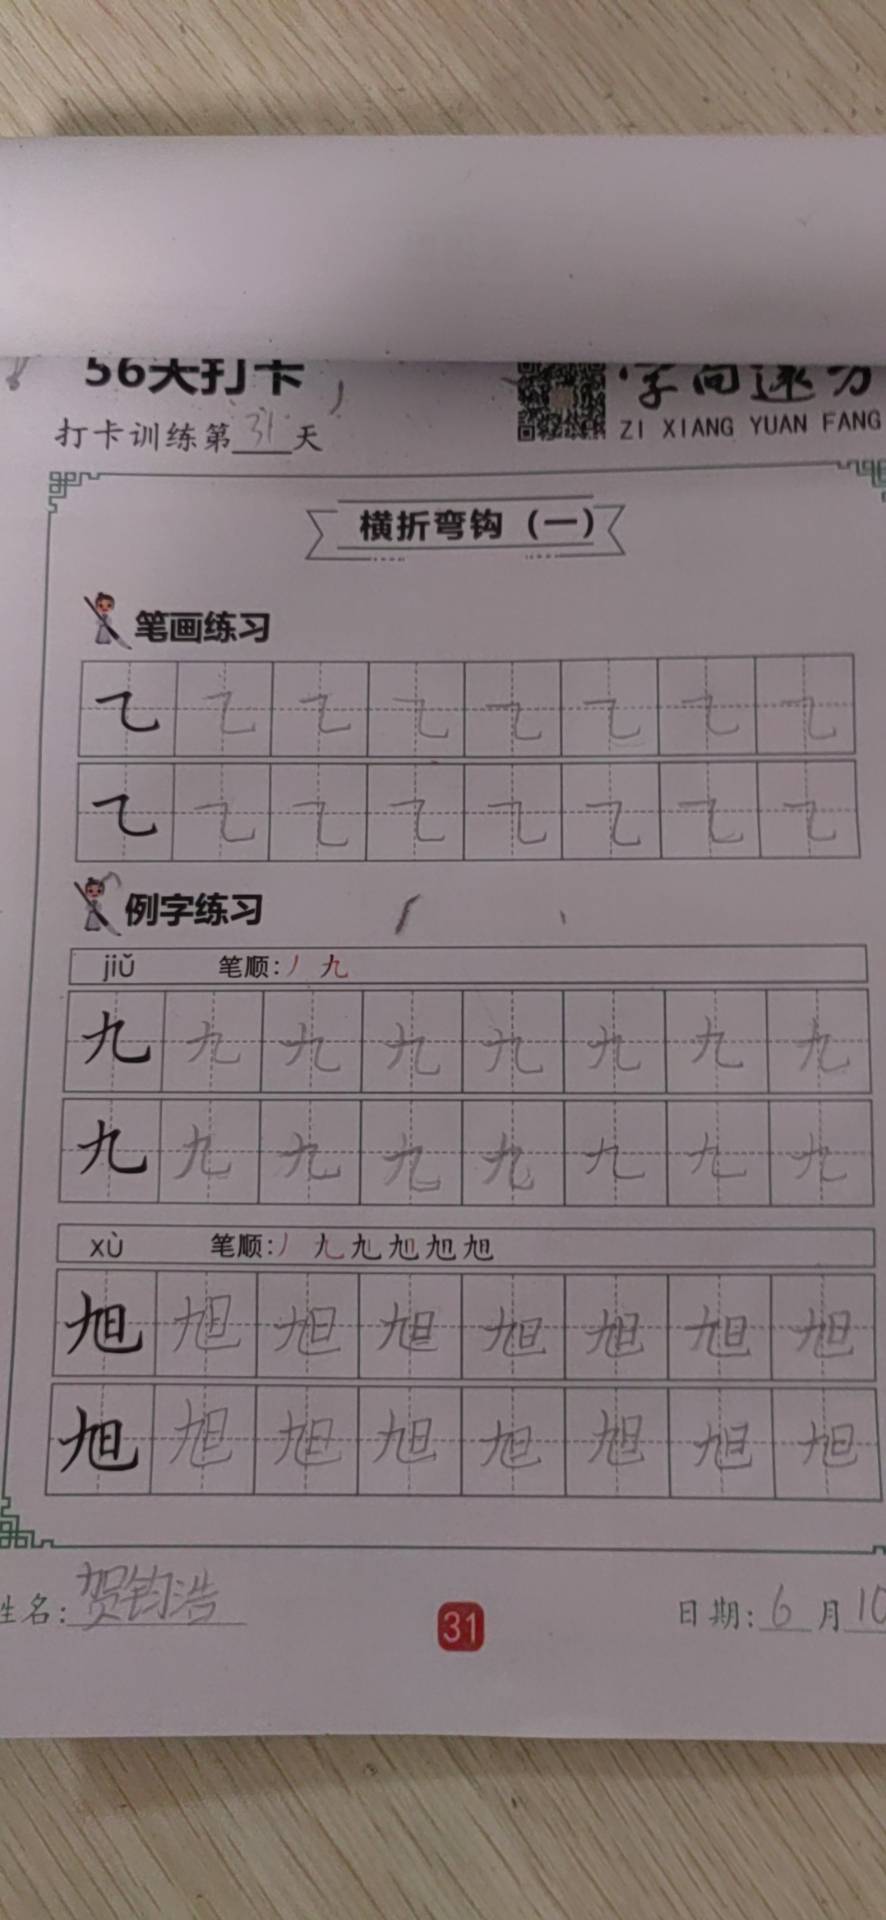 56天打卡
字向远方
ZI XIANG YUAN FANG
打卡训练第31天
横折弯钩（一）
笔画练习
乙 乙 乙 乙 乙 乙 乙 乙
乙 乙 乙 乙 乙 乙 乙 乙
例字练习
jiǔ 笔顺：丿 九
九 九 九 九 九 九 九 九
九 九 九 九 九 九 九 九
xù 笔顺：丿 九 九 旭 旭 旭
旭 旭 旭 旭 旭 旭 旭 旭
旭 旭 旭 旭 旭 旭 旭 旭
姓名：贺钧浩
31
日期：6月10